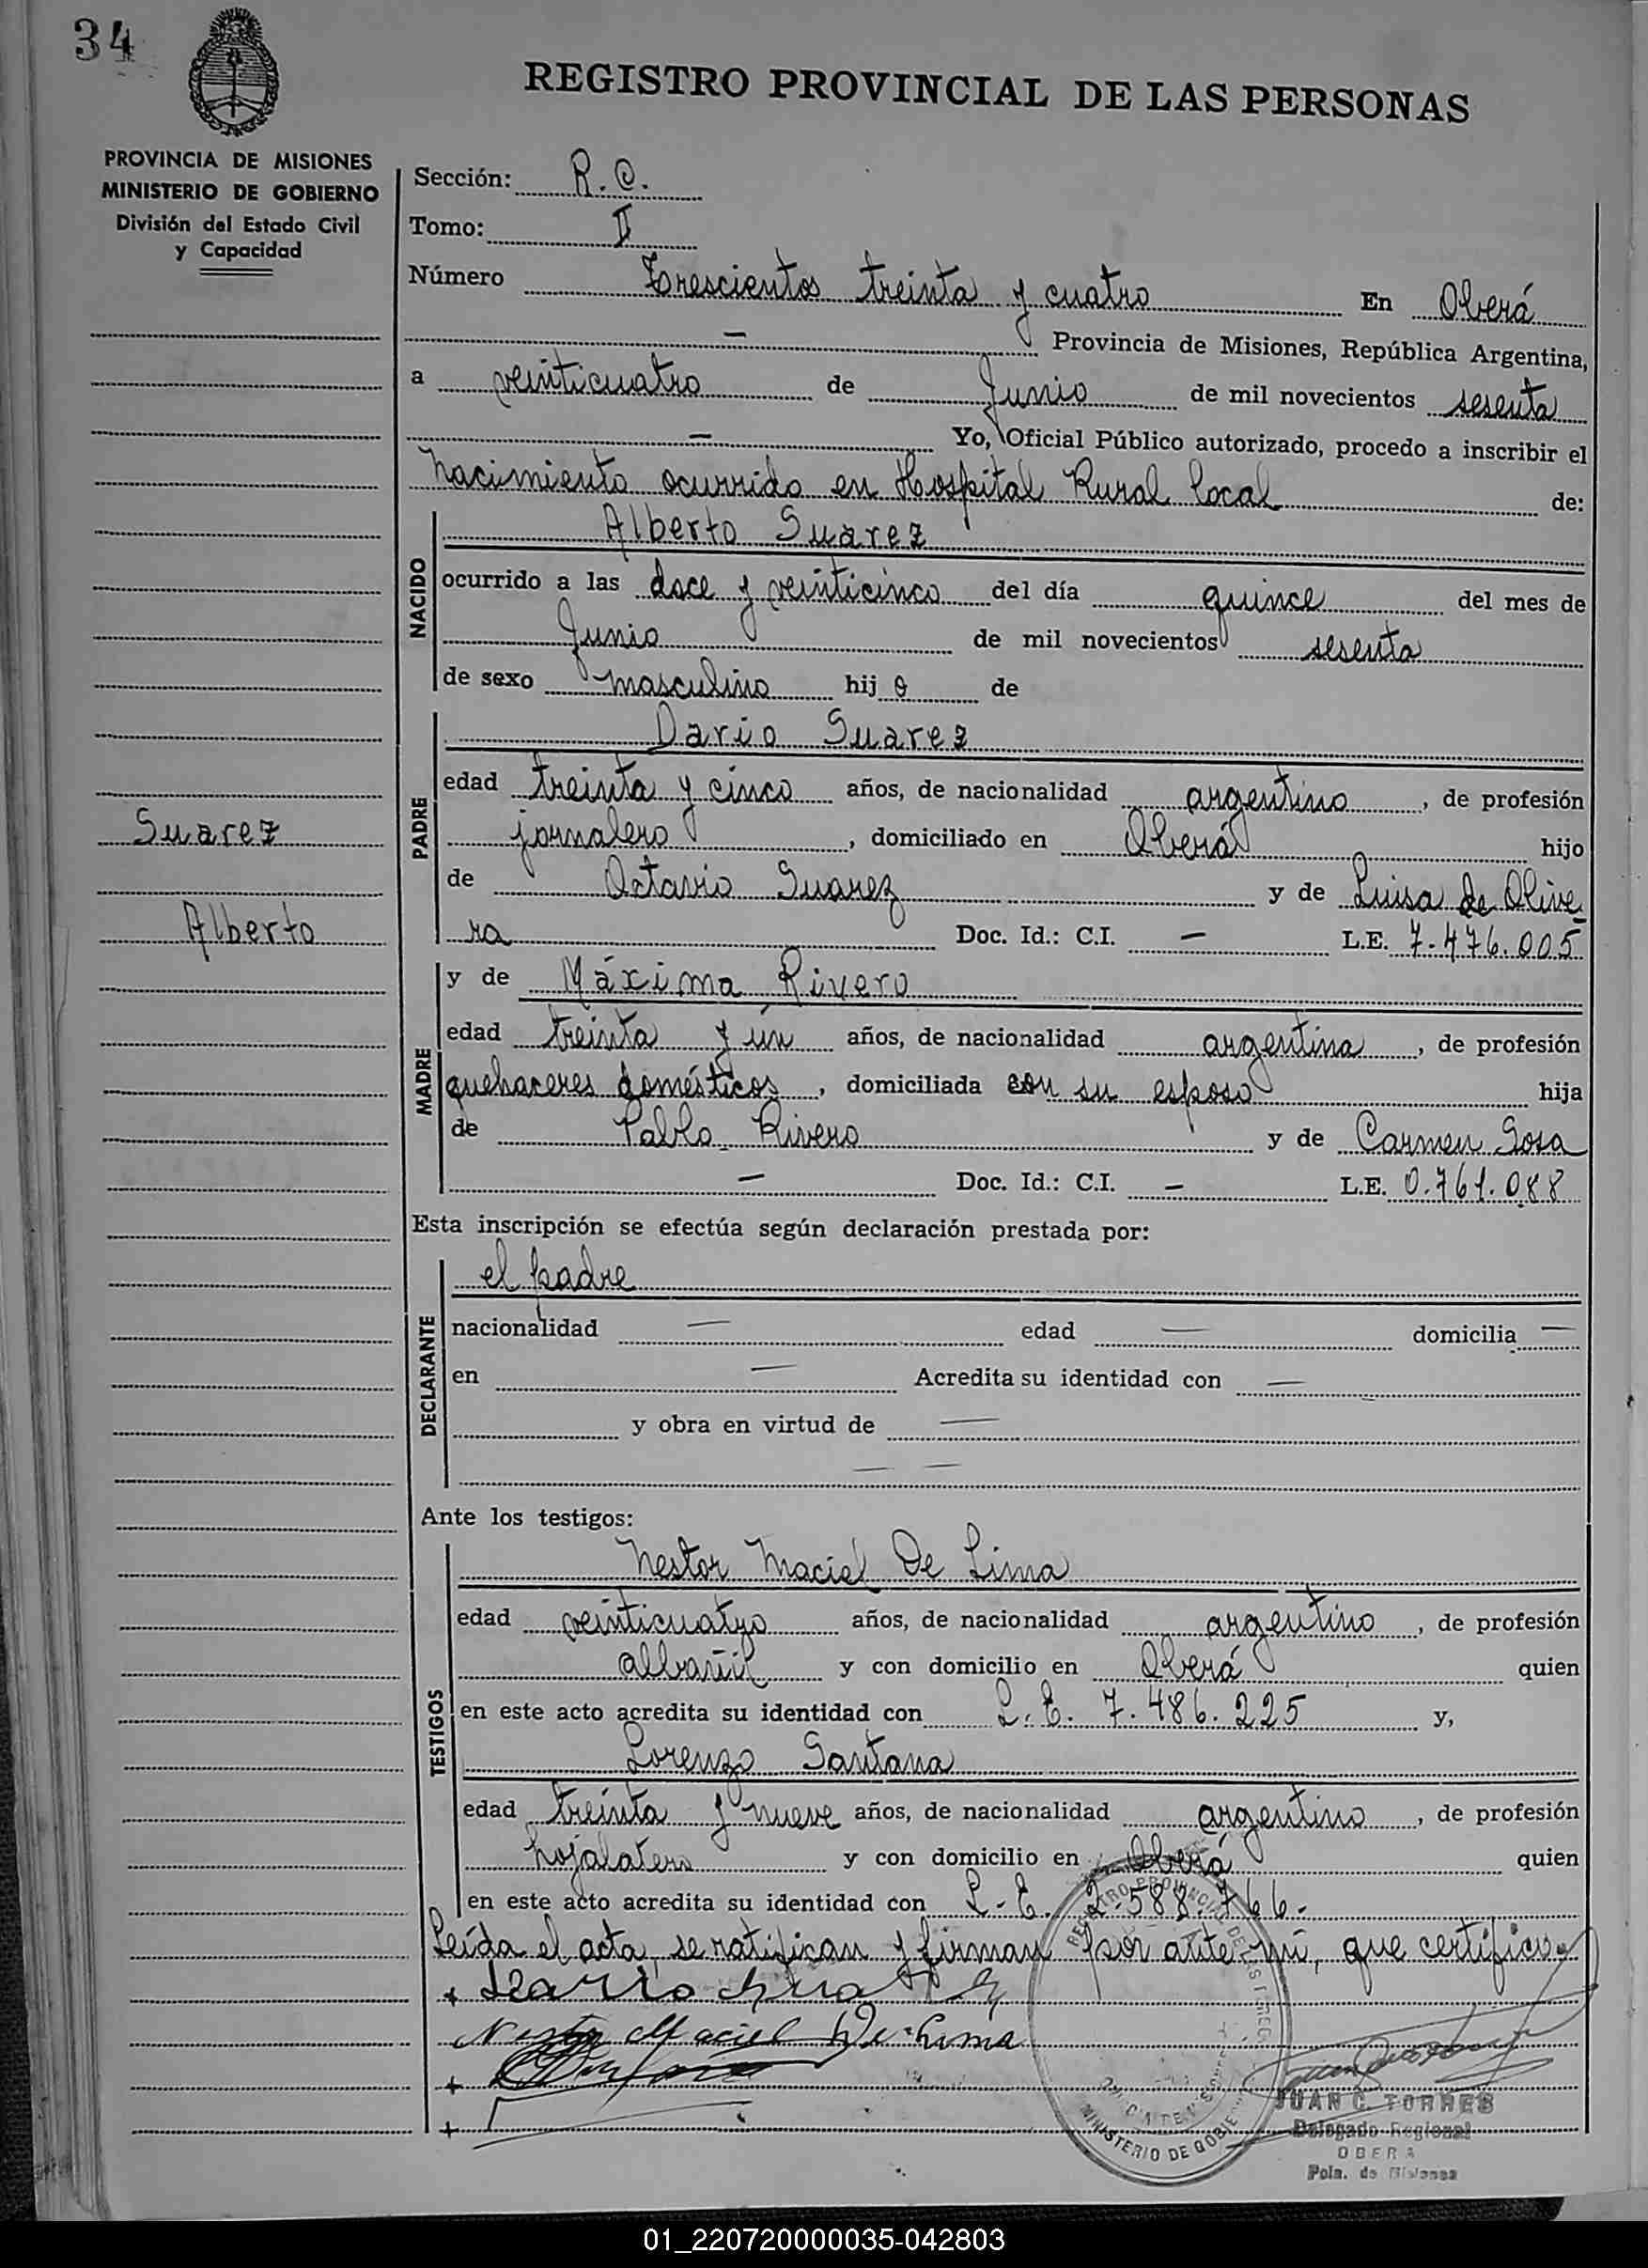 34
REGISTRO PROVINCIAL DE LAS PERSONAS
PROVINCIA DE MISIONES
MINISTERIO DE GOBIERNO
División del Estado Civil
y Capacidad
Sección: R.C.
Tomo: II
Número Trescientos treinta y cuatro En Oberá
— Provincia de Misiones, República Argentina,
a veinticuatro de Junio de mil novecientos sesenta
— Yo, Oficial Público autorizado, procedo a inscribir el
nacimiento ocurrido en Hospital Rural local de:
NACIDO
Alberto Suarez
ocurrido a las doce y veinticinco del día quince del mes de
Junio de mil novecientos sesenta
de sexo masculino hij o de
PADRE
Dario Suarez
edad treinta y cinco años, de nacionalidad argentino, de profesión
jornalero, domiciliado en Oberá hijo
de Octavio Suarez y de Luisa de Olive
ra Doc. Id.: C.I. — L.E. 7.476.005
Suarez
Alberto
MADRE
y de Máxima Rivero
edad treinta y ún años, de nacionalidad argentina, de profesión
quehaceres domésticos, domiciliada con su esposo hija
de Pablo Rivero y de Carmen Sosa
— Doc. Id.: C.I. — L.E. 0.761.088
Esta inscripción se efectúa según declaración prestada por:
DECLARANTE
el padre
nacionalidad — edad — domicilia —
en — Acredita su identidad con —
y obra en virtud de —
— —
Ante los testigos:
TESTIGOS
Nestor Maciel De Lima
edad veinticuatro años, de nacionalidad argentino, de profesión
albañil y con domicilio en Oberá quien
en este acto acredita su identidad con L.E. 7.486.225 y,
Lorenzo Santana
edad treinta y nueve años, de nacionalidad argentino, de profesión
hojalatero y con domicilio en Oberá quien
en este acto acredita su identidad con L.E. 2.588.766.-
Leída el acta, se ratifican y firman por ante mí, que certifico.
+ Dario Suarez
Nestor Maciel De Lima
+
+
REGISTRO PROVINCIAL DE LAS PERSONAS
MINISTERIO DE GOBIERNO
JUAN C. TORRES
Delegado Regional
OBERA
Pcia. de Misiones
01_220720000035-042803